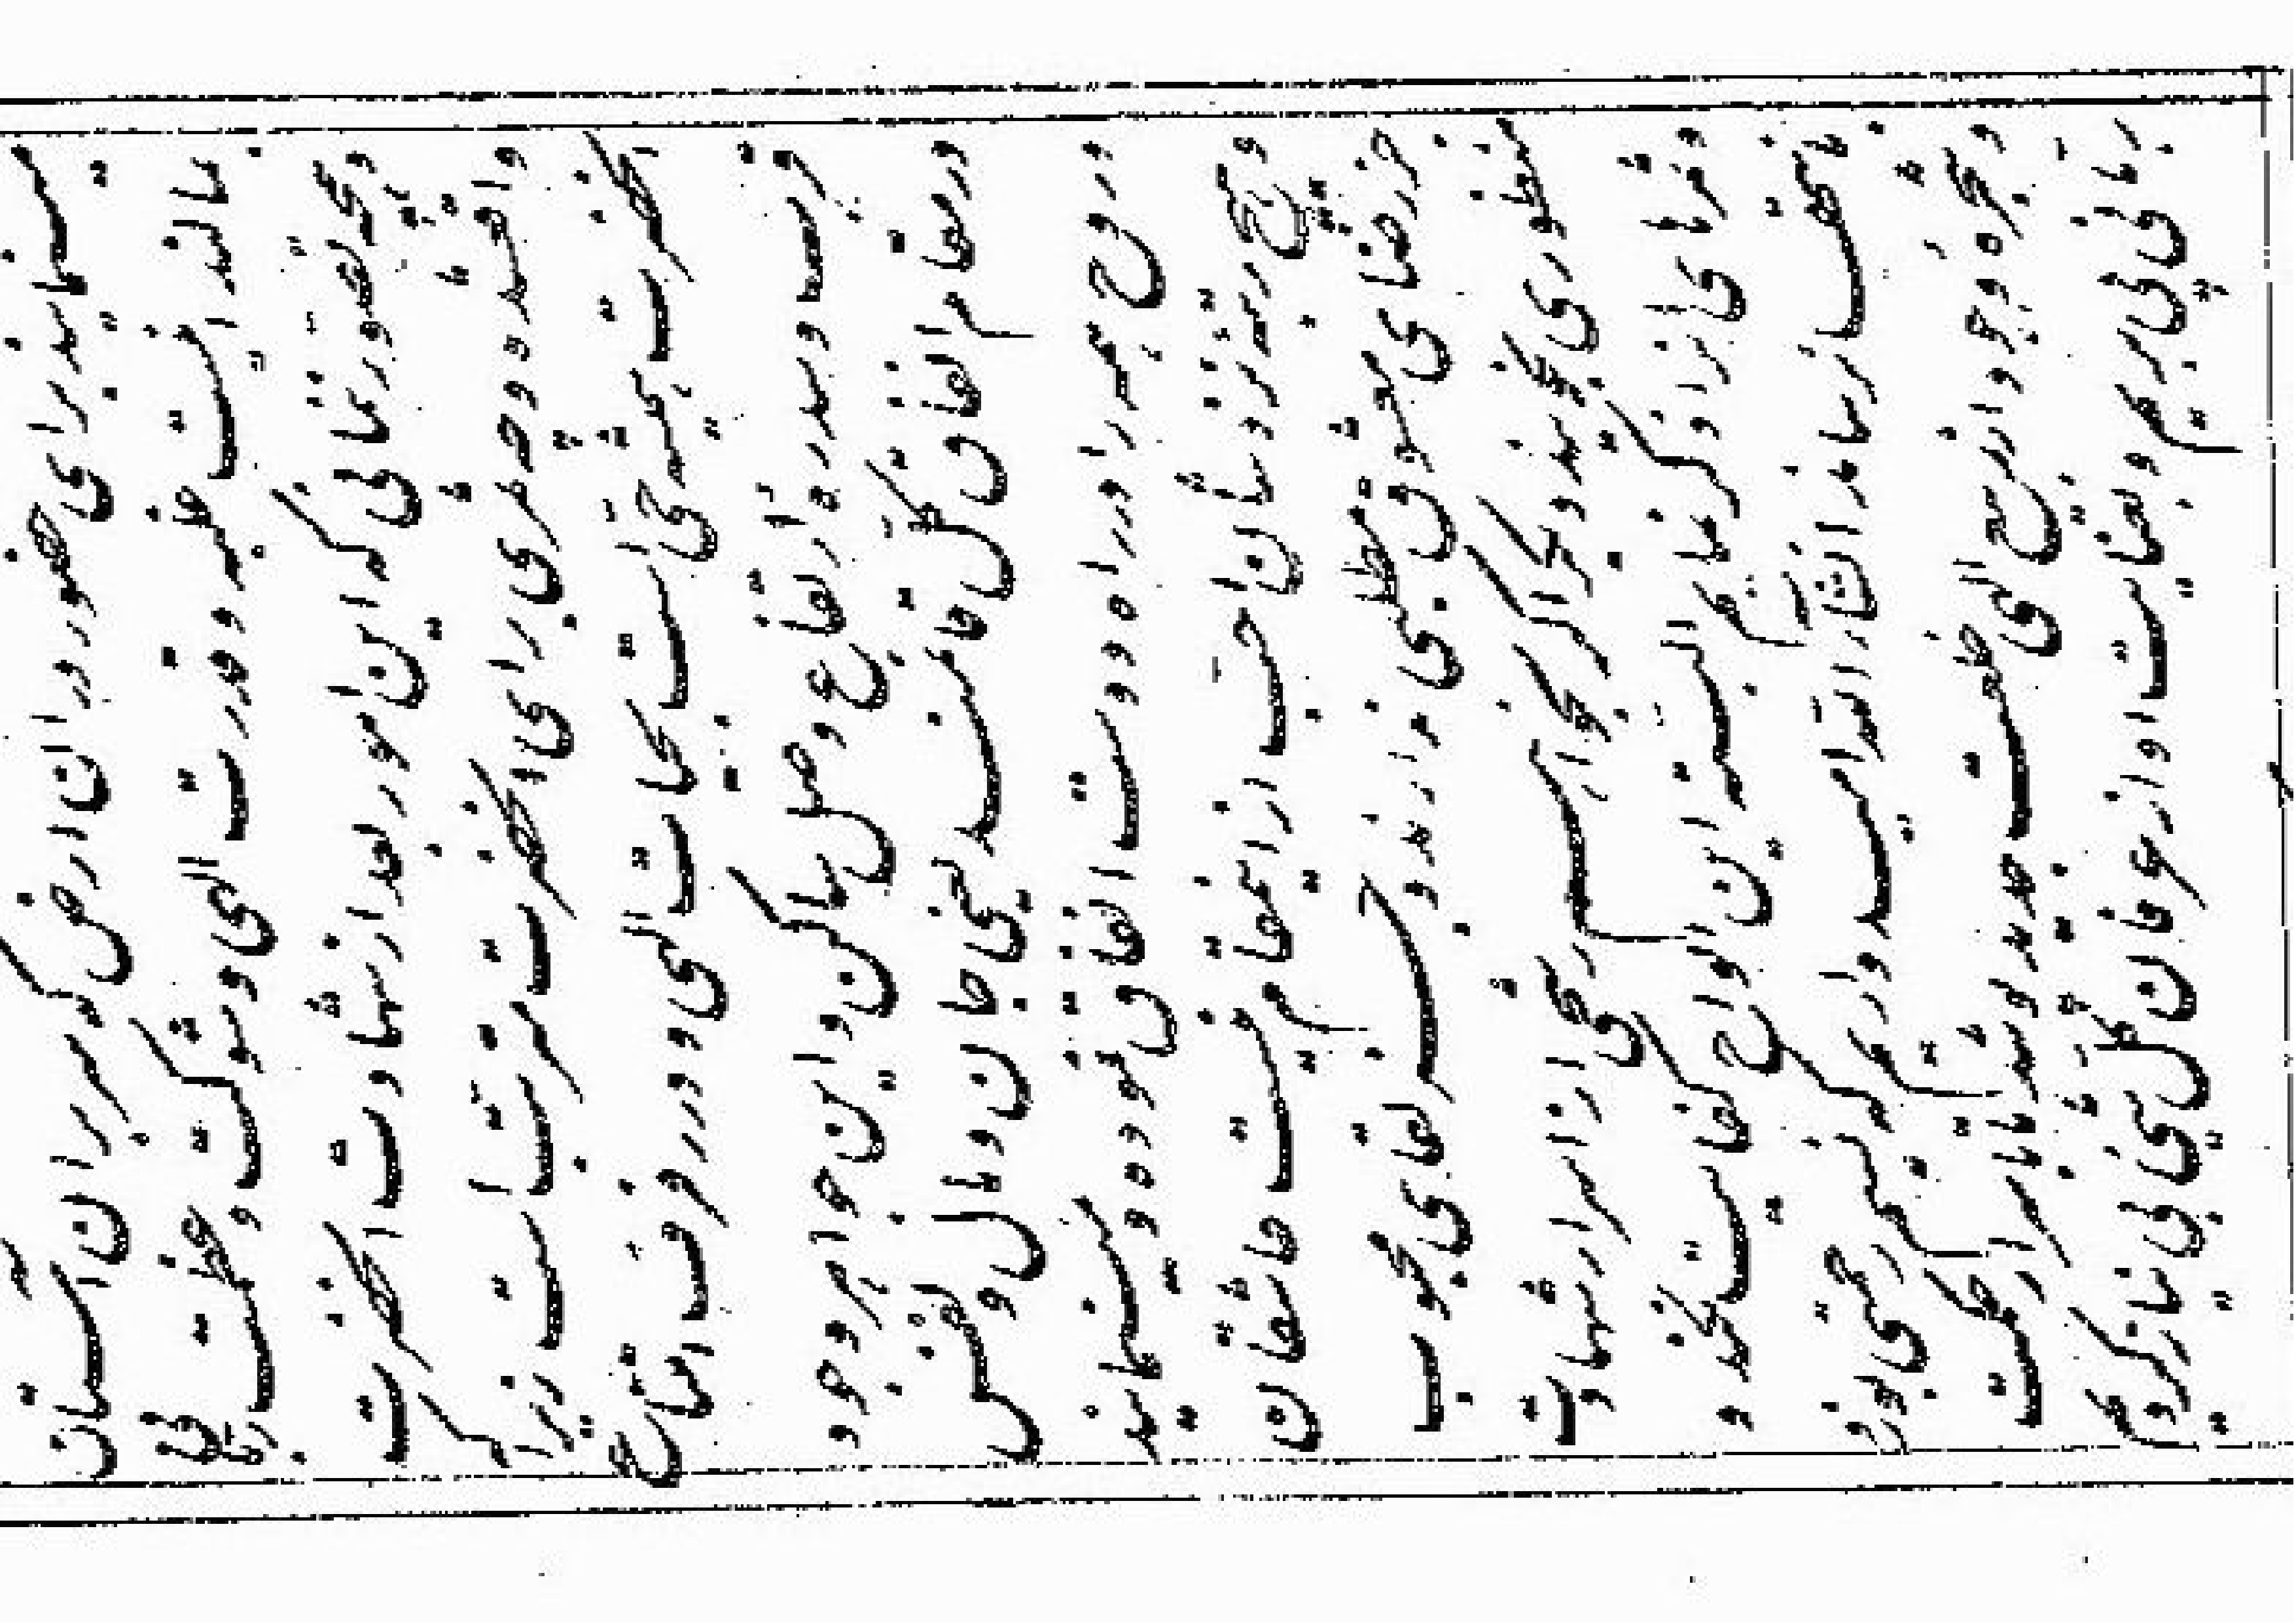 مینمایند برای حضور در ان ارض که سر بر ان استان
مالند انست غلبه و قدرت الهی و شوکت و عظمت ربانی
و همچه تصور ننمائی که این امور بعد از شهادت انحضرت
واقع شد و چه ثمری برای انحضرت مترتب است زیرا که
انحضرت همیشه حی است بحیات الهی و در رفرف امتناع
قرب و سدره ارتفاع وصل ساکن و این جواهر وجود
در مقام انفاق کل قائمند یعنی جان و مال و نفس و
روح همه را در راه دوست انفاق نموده و مینمایند
و هیچ رتبه نزدشان احب از انمقام نیست عاشقان
جز رضای معشوق مطلبی ندارند و جز لقای محبوب
منظوری نجویند دیگر اگر بخواهم رشحی از اسرار شهادت
و ثمرهای انرا ذکر نمایم البته این الواح کفایت نکند و
بانتها نرساند انشاء الله امیدواریم که نسیم رحمتی بوزد
و شجره وجود از ربیع الهی خلعت جدید پوشد تا باسرار حکمت
ربانی پی بریم و بعنایت او از عرفان کل شیء بی نیاز گردیم